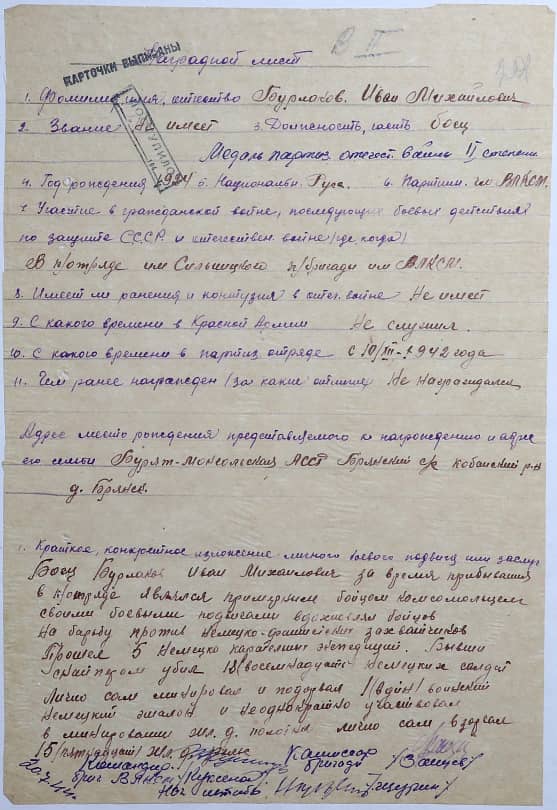 В II
КАРТОЧКИ ВЫПИСАНЫ
Наградной лист
1. Фамилия имя, отчество Бурлаков. Иван Михайлович
2. Звание не имеет 3. Должность, часть боец
Медаль партиз. отечест. войны II степени
4. Год рождения 1924 5. Национальн. Русс. 6. Партийн. чл ВЛКСМ.
7. Участие в гражданской войне, последующих боевых действиях
по защите СССР и отечествен. войне (где, когда)
В п/отряде им Сильницкого п/бригады им ВЛКСМ.
8. Имеет ли ранения и контузия в отеч. войне Не имеет
9. С какого времени в Красной Армии Не служил.
10. С какого времени в партиз отряде с 10/XII-1942 года
11. Чем ранее награжден (за какие отличия Не награждался
Адрес место рождения представляемого к награждению и адрес
его семьи Бурят-Монгольская АССР Брянский с/с Кобанский р-н
д. Брянск.
1. Краткое, конкретное изложение личного боевого подвига или заслуг
Боец Бурлаков Иван Михайлович за время прибывания
в п/отряде являлся примерным бойцом комсомольцем
своими боевыми подвигами вдохновлял бойцов
на барьбу против немецко-фашистких захватчиков
Прошел 5 немецко карательных экспедиций. Бывши
снайпером убил 18 (восемнадцать) немецких солдат
Лично сам минировал и подорвал 1 (один) воинский
немецкий эшалон и неоднократно участвовал
в минировании жел. д. полотна лично сам взорвал
15 (пятнадцать) жел. д.
Командир Комиссар
бриг ВЛКСМ бригады
Нач штаба